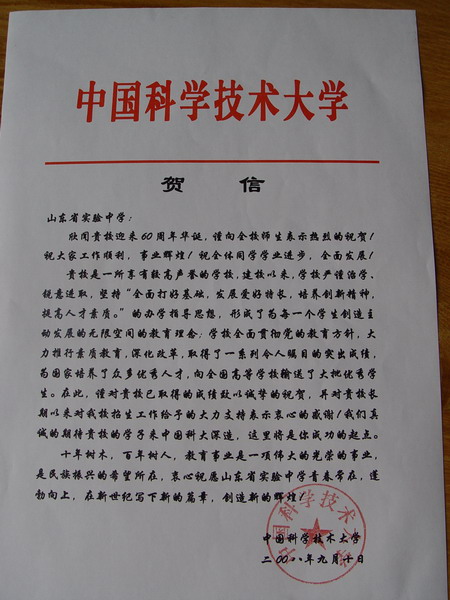 中国科学技术大学
贺 信
山东省实验中学：
欣闻贵校迎来60周年华诞，谨向全校师生表示热烈的祝贺！
祝大家工作顺利，事业辉煌！祝全体同学学业进步，全面发展！
贵校是一所享有较高声誉的学校，建校以来，学校严谨治学、
锐意进取，坚持“全面打好基础，发展爱好特长，培养创新精神，
提高人才素质。”的办学指导思想，形成了为每一个学生创造主
动发展的无限空间的教育理念；学校全面贯彻党的教育方针，大
力推行素质教育，深化改革，取得了一系列令人瞩目的突出成绩，
为国家培养了众多优秀人才，向全国高等学校输送了大批优秀学
生。在此，谨对贵校已取得的成绩致以诚挚的祝贺，并对贵校长
期以来对我校招生工作给予的大力支持表示衷心的感谢！我们真
诚的期待贵校的学子来中国科大深造，这里将是你成功的起点。
十年树木，百年树人，教育事业是一项伟大的光荣的事业，
是民族振兴的希望所在，衷心祝愿山东省实验中学青春常在，蓬
勃向上，在新世纪写下新的篇章，创造新的辉煌！
中国科学技术大学
二〇〇八年九月十日
中国科学技术大学